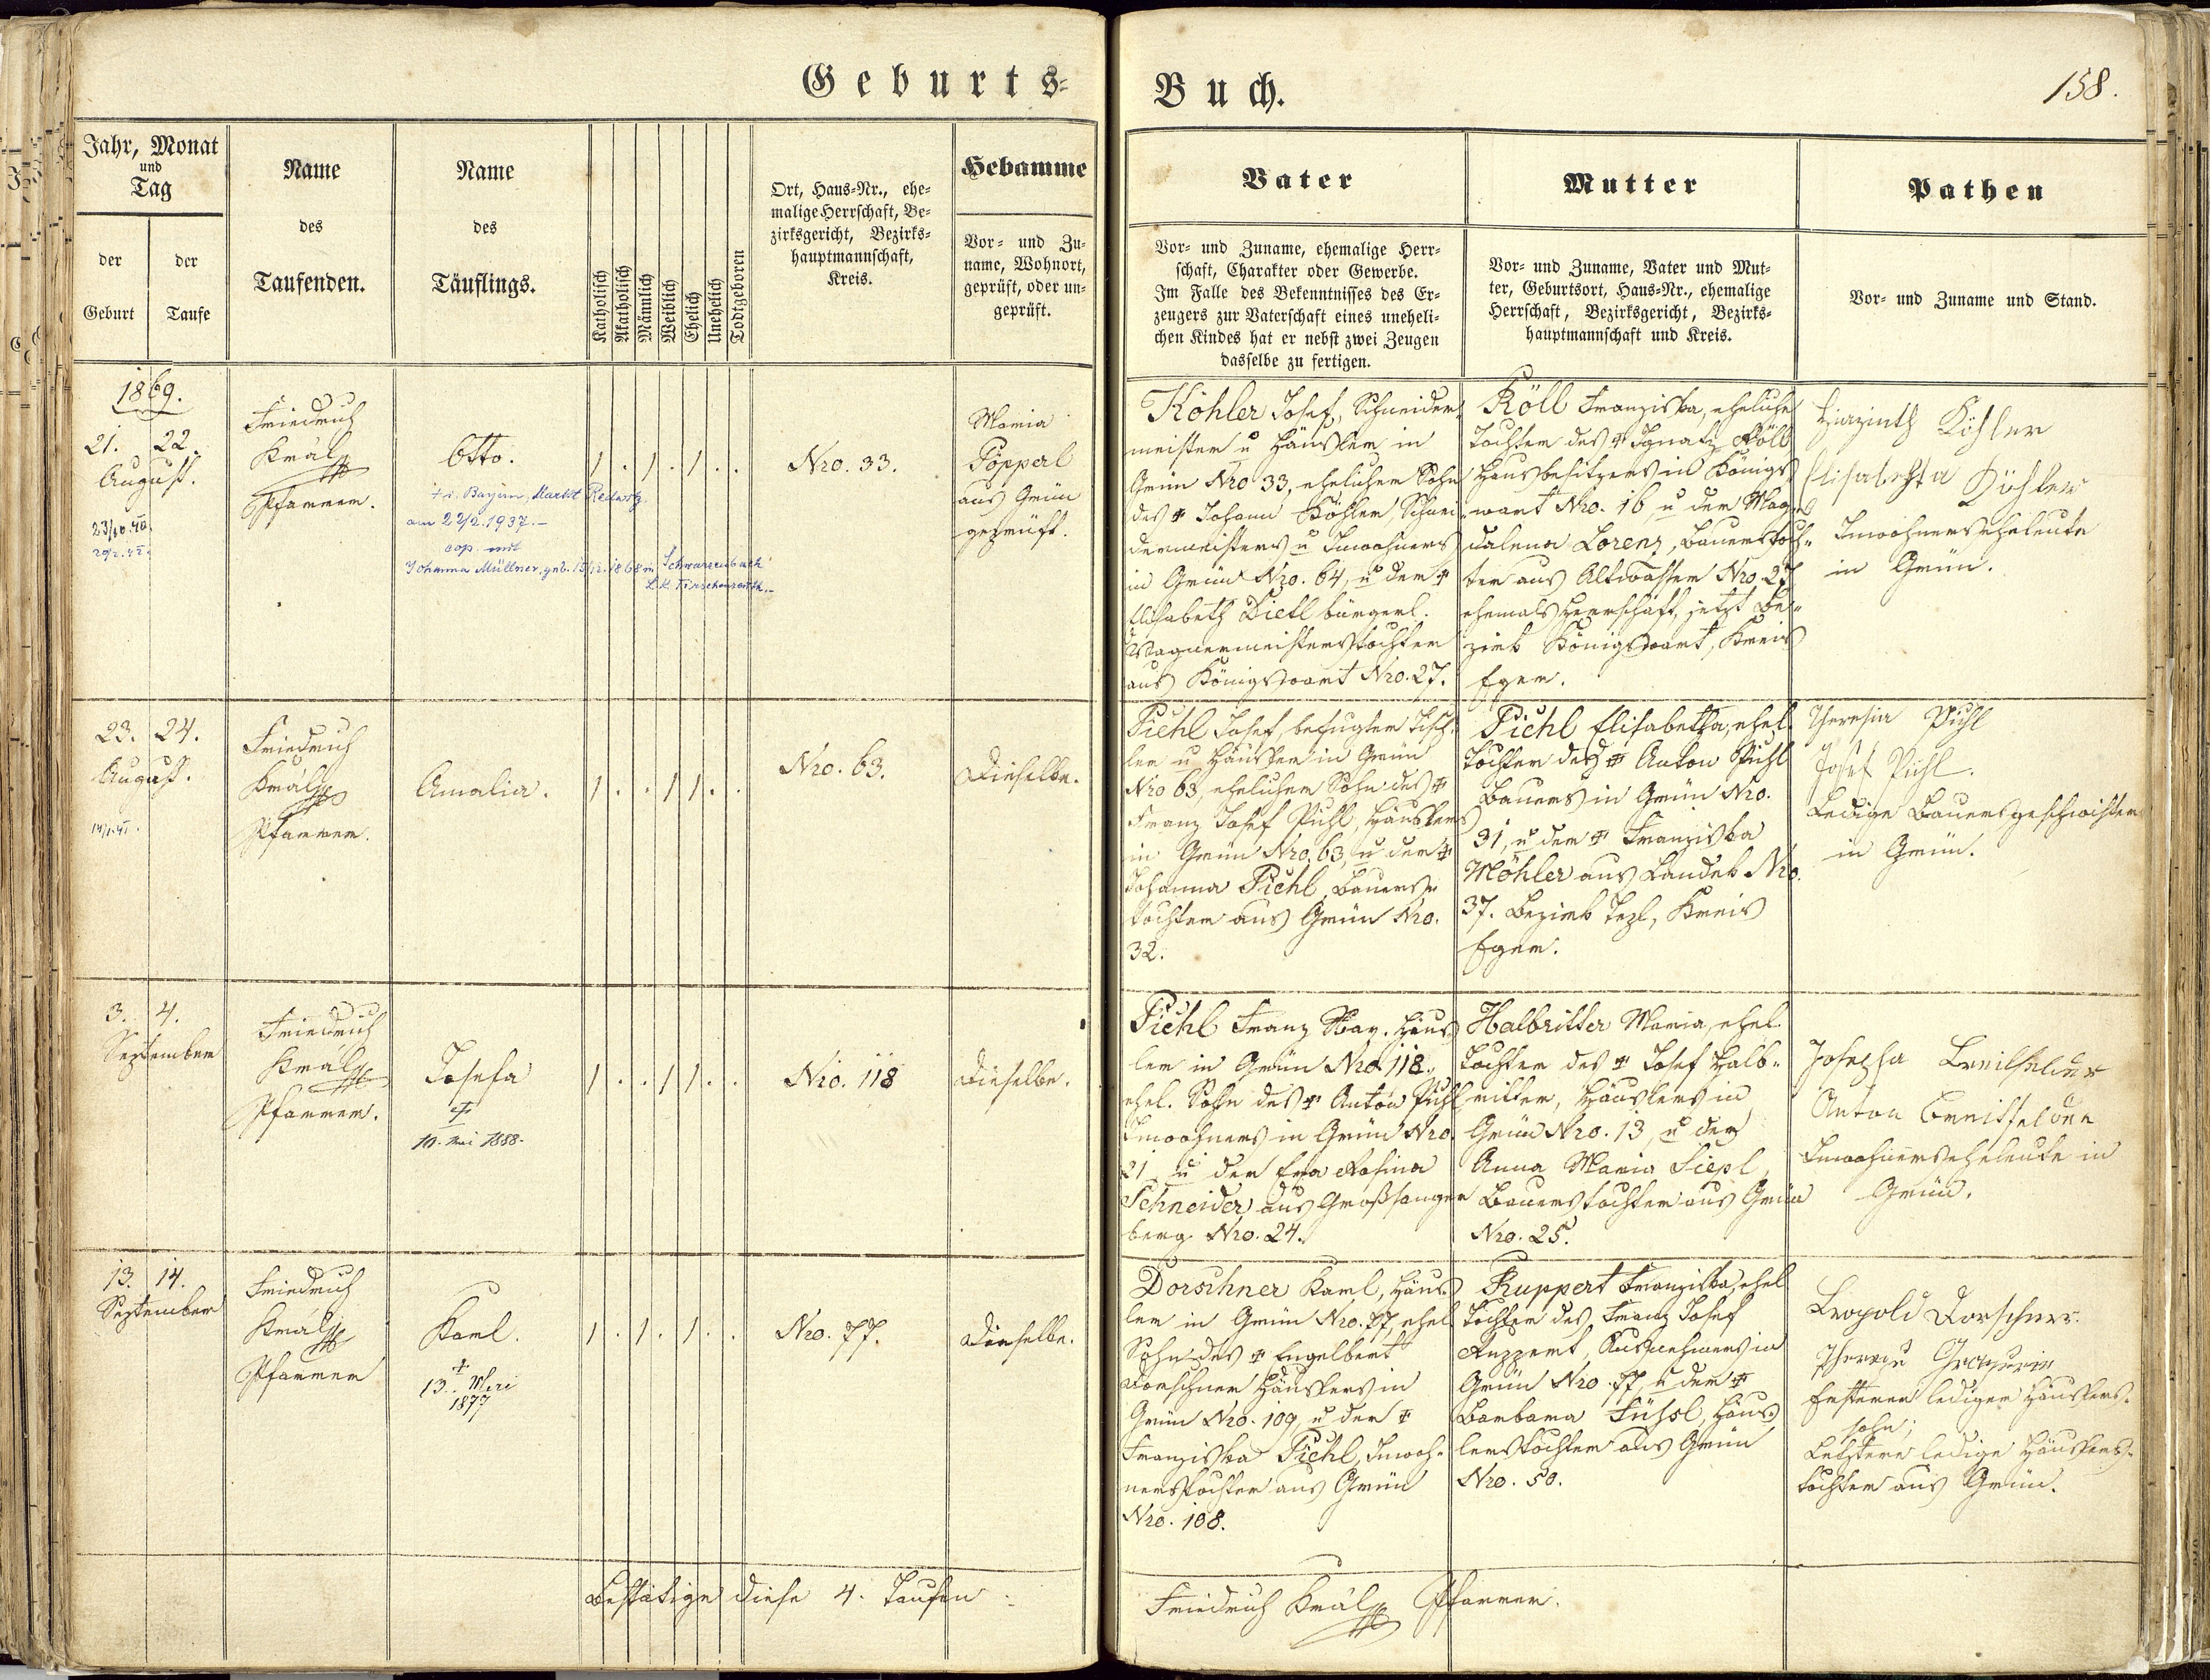 Geburts=
Buch.
158.
Jahr, Monat
und
Tag
der
Geburt
der
Taufe
Name
des
Taufenden.
Name
des
Täuflings.
Katholisch
Akatholisch
Männlich
Weiblich
Ehelich
Unehelich
Todtgeboren
Ort, Haus=Nr., ehe=
malige Herrschaft, Be=
zirksgericht, Bezirks=
hauptmannschaft,
Kreis.
Hebamme
Vor= und Zu=
name, Wohnort,
geprüft, oder un=
geprüft.
Vater
Vor= und Zuname, ehemalige Herr=
schaft, Charakter oder Gewerbe.
Im Falle des Bekenntnisses des Er=
zeugers zur Vaterschaft eines uneheli=
chen Kindes hat er nebst zwei Zeugen
dasselbe zu fertigen.
Mutter
Vor= und Zuname, Vater und Mut=
ter, Geburtsort, Haus=Nr., ehemalige
Herrschaft, Bezirksgericht, Bezirks=
hauptmannschaft und Kreis.
Pathen
Vor= und Zuname und Stand.
1869.
21. 22.
August.
Friedrich
Král
Pfarrer.
Otto.
† i. Bayern, Markt Redwitz
am 22/2. 1937.-
cop. mit
Johanna Müllner, geb. 15/12. 1868 in Schwarzenbach
1 . 1 . 1 . .
Nro. 33.
Maria
Pöpperl
aus Grün
geprüft.
Köhler Josef, Schneider=
meister u Häusler in
Grün Nro 33, ehelicher Sohn
des † Johann Köhler, Schnei=
dermeisters u Inwohners
in Grün Nro. 64, u der †
Elisabeth Dietl bürgerl.
Wagnermeisterstochter
aus Königswart Nro. 27.
Köll Franziska, eheliche
Tochter des † Ignatz Köll
Hausbesitzers in Königs=
wart Nro. 16, u der Mag=
dalena Lorenz, Bauerstoch=
ter aus Altwasser Nro 27
ehemals Herrschaft, jetzt Be=
zirk Königswart, Kreis
Eger.
Hiazinth Köhler
Elisabetha Köhler
Inwohnerseheleute
in Grün.
23. 24.
August.
Friedrich
Král
Pfarrer.
Amalia.
1 . . 1 1 . .
Nro. 63.
Dieselbe.
Pichl Josef, befugter Tisch=
ler u Häusler in Grün
Nro 63, ehelicher Sohn des †
Franz Josef Pichl, Häuslers
in Grün Nro. 63, u der †
Johanna Pichl, Bauers=
tochter aus Grün Nro.
32.
Pichl Elisabetha, ehel.
Tochter des † Anton Pichl
Bauers in Grün Nro.
31, u der † Franziska
Möhler aus Landek Nro.
37. Bezirk Tepl, Kreis
Eger.
Theresia Pichl
Josef Pichl.
Ledige Bauersgeschwister
in Grün.
3. 4.
September
Friedrich
Král
Pfarrer.
Josefa
†
10. Mai 1888.
1 . . 1 1 . .
Nro. 118
Dieselbe.
Pichl Franz Xav. Häus=
ler in Grün Nro 118.,
ehel. Sohn des † Anton Pichl
Inwohners in Grün Nro.
21 u der Eva Rosina
Schneider aus Großsanger
berg Nro. 24.
Halbritter Maria, ehel.
Tochter des † Josef Halb=
ritter, Häuslers in
Grün Nro. 13, u der
Anna Maria Siepl,
Bauerstochter aus Grün
Nro. 25.
Josepha Breitfelder
Anton Breitfelder
Inwohnerseheleute in
Grün.
13. 14.
September
Friedrich
Král
Pfarrer
Karl.
†
1877
1 . 1 . 1 . .
Nro. 77.
Dieselbe.
Dorschner Karl, Häus=
ler in Grün Nro. 77, ehel
Sohn des † Engelbert
Dorschner Häuslers in
Grün Nro. 109, u der †
Franziska Pichl, Inwoh=
nerstochter aus Grün
Nro. 108.
Ruppert Franziska, ehel
Tochter des Franz Josef
Ruppert, Ausnehmers in
Grün Nro. 77, u der †
Barbara Füssl, Häus=
lerstochter aus Grün
Nro. 50.
Leopold Dorschner.
Ersterer lediger Häuslers=
sohn,
Letztere ledige Häuslers=
tochter aus Grün.
Bestätige diese 4. Taufen :
Friedrich Král Pfarrer.